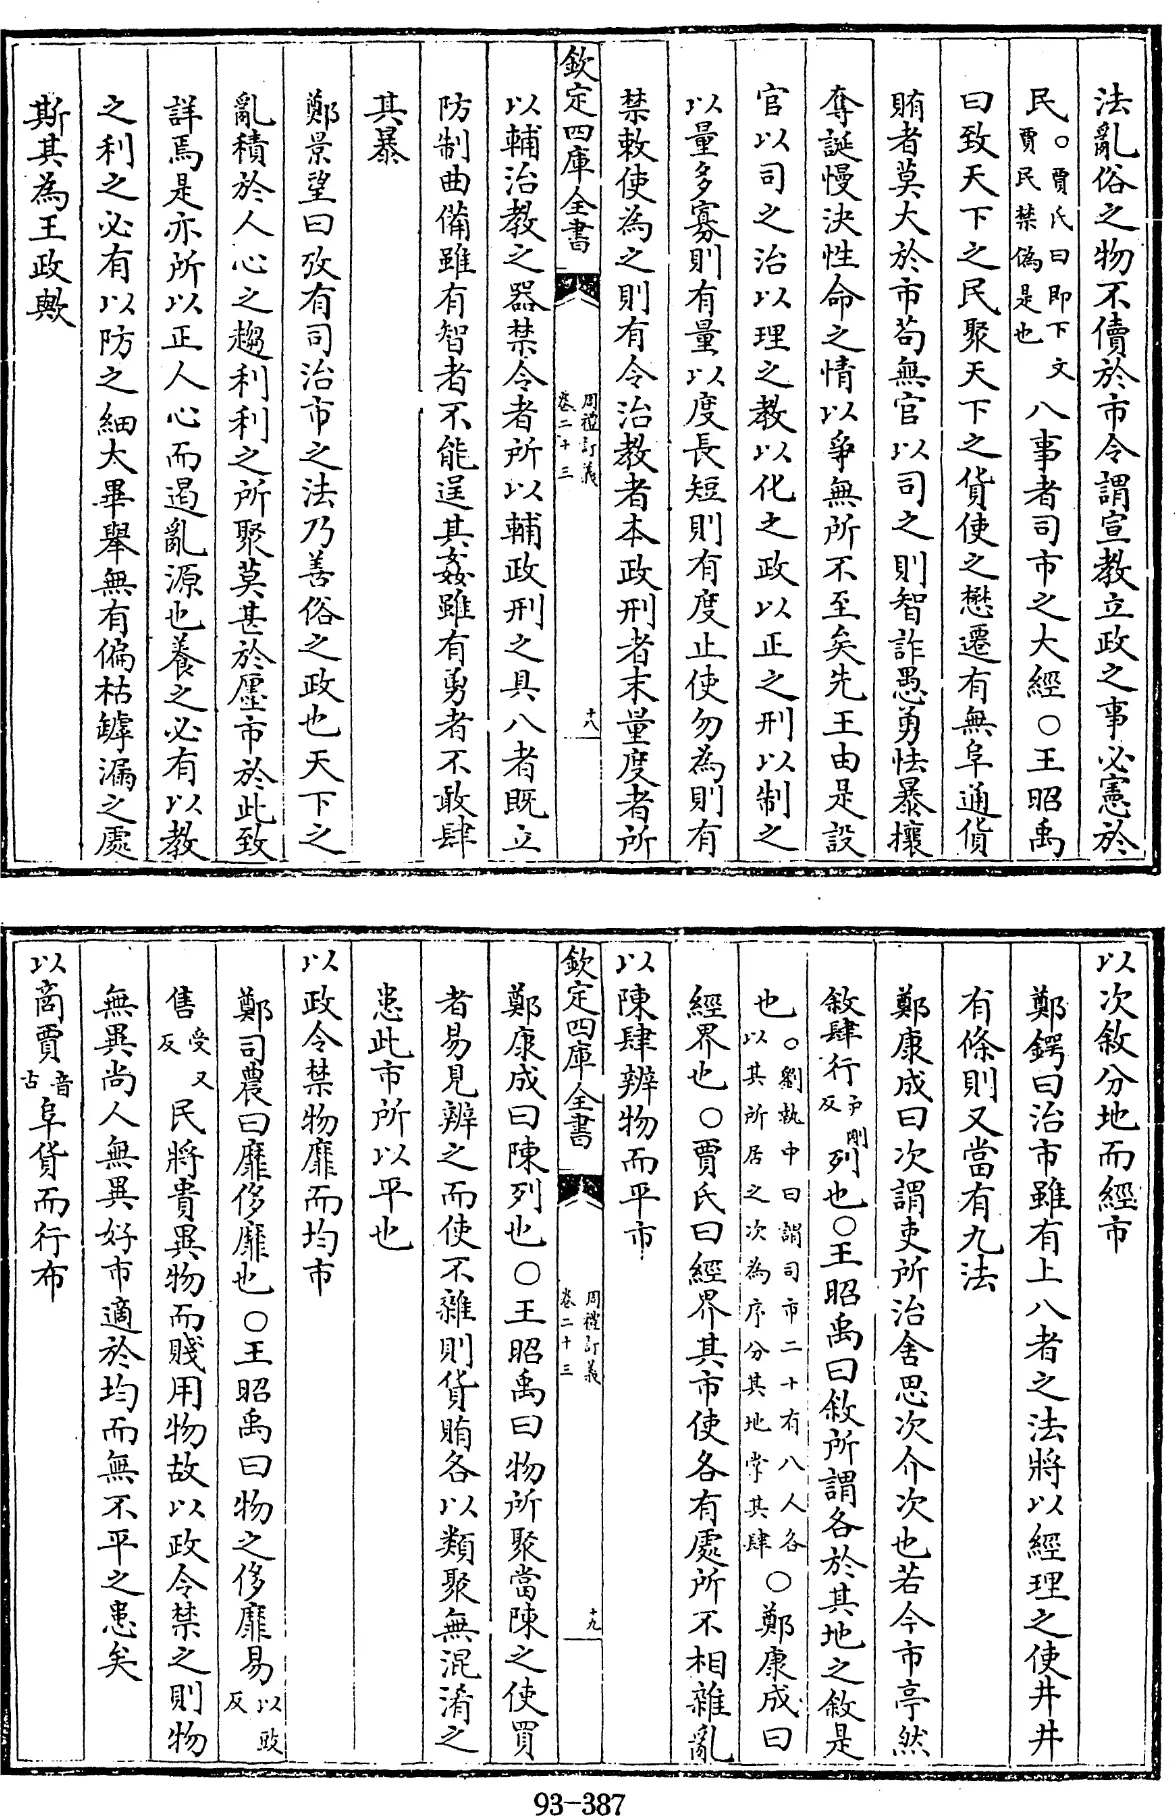 法亂俗之物不儥於市令謂宣教立政之事必憲於
民○賈氏曰即下文賈民禁偽是也八事者司市之大經○王昭禹
曰致天下之民聚天下之貨使之懋遷有無阜通貨
賄者莫大於市苟無官以司之則智詐愚勇怯暴攘
奪誕慢決性命之情以爭無所不至矣先王由是設
官以司之治以理之教以化之政以正之刑以制之
以量多寡則有量以度長短則有度止使勿為則有
禁敕使為之則有令治教者本政刑者末量度者所
欽定四庫全書
周禮訂義
卷二十三
十八
以輔治教之器禁令者所以輔政刑之具八者既立
防制曲備雖有智者不能逞其姦雖有勇者不敢肆
其暴
鄭景望曰攷有司治市之法乃善俗之政也天下之
亂積於人心之趨利利之所聚莫甚於廛市於此致
詳焉是亦所以正人心而遏亂源也養之必有以教
之利之必有以防之細大畢舉無有偏枯罅漏之處
斯其為王政歟
以次敘分地而經市
鄭鍔曰治市雖有上八者之法將以經理之使井井
有條則又當有九法
鄭康成曰次謂吏所治舍思次介次也若今市亭然
敘肆行戸剛反列也○王昭禹曰敘所謂各於其地之敘是
也○劉執中曰謂司市二十有八人各以其所居之次為序分其地掌其肆○鄭康成曰
經界也○賈氏曰經界其市使各有處所不相雜亂
以陳肆辨物而平市
欽定四庫全書
周禮訂義
卷二十三
十九
鄭康成曰陳列也○王昭禹曰物所聚當陳之使買
者易見辨之而使不雜則貨賄各以類聚無混淆之
患此市所以平也
以政令禁物靡而均市
鄭司農曰靡侈靡也○王昭禹曰物之侈靡易以豉反
售受又反民將貴異物而賤用物故以政令禁之則物
無異尚人無異好市適於均而無不平之患矣
以商賈音古阜貨而行布
93-387